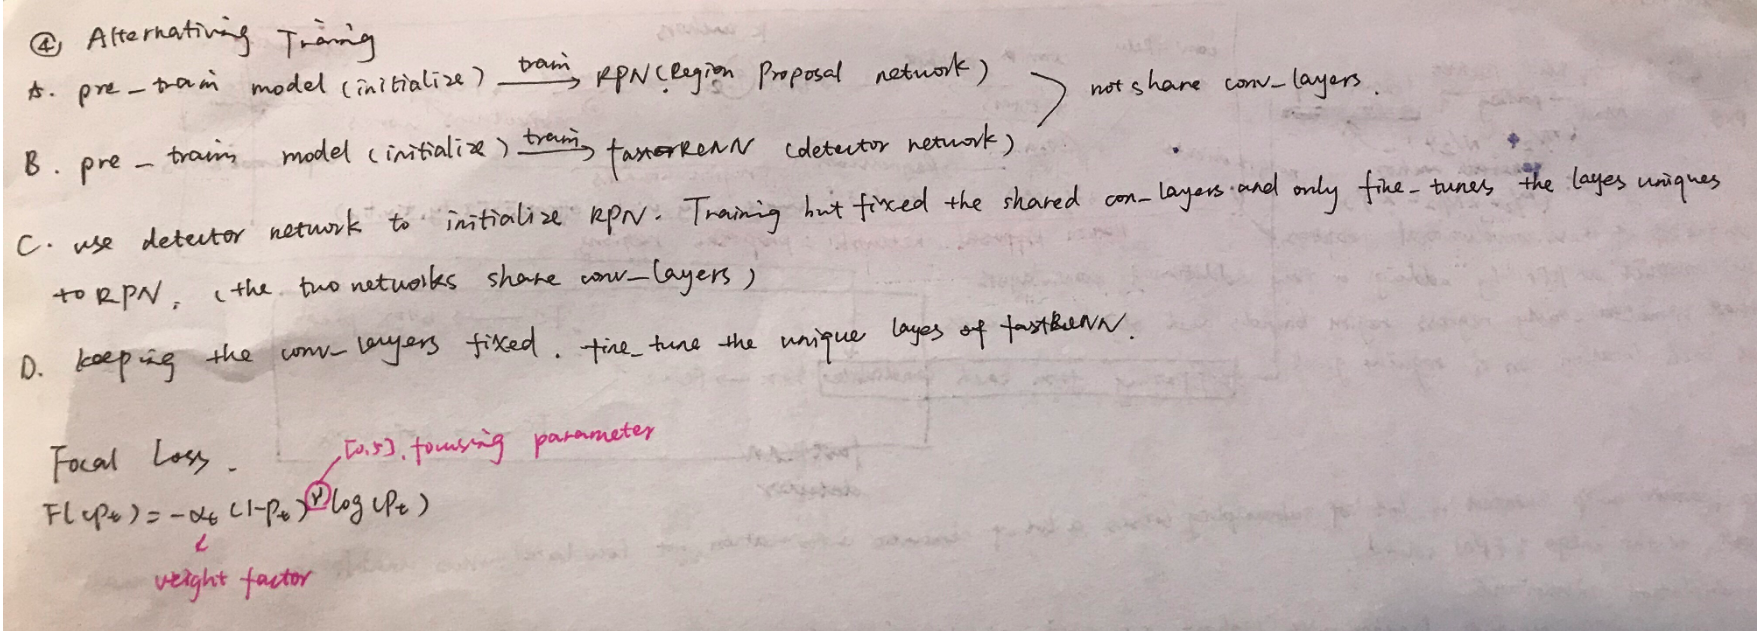 ④ Alternativing Training
A. pre-train model (initialize) train RPN (Region Proposal network)
not share conv-layers.
B. pre-train model (initialize) train fastRCNN (detector network)
C. use detector network to initialize RPN. Training but fixed the shared con-layers and only fine-tunes the layes uniques
to RPN, (the two networks share conv-layers)
D. keeping the conv-layers fixed. fine-tune the unique layes of fastRCNN.
Focal Loss.
[0,5], focusing parameter
FL(Pt) = -αt (1-Pt)^γ log(Pt)
weight factor